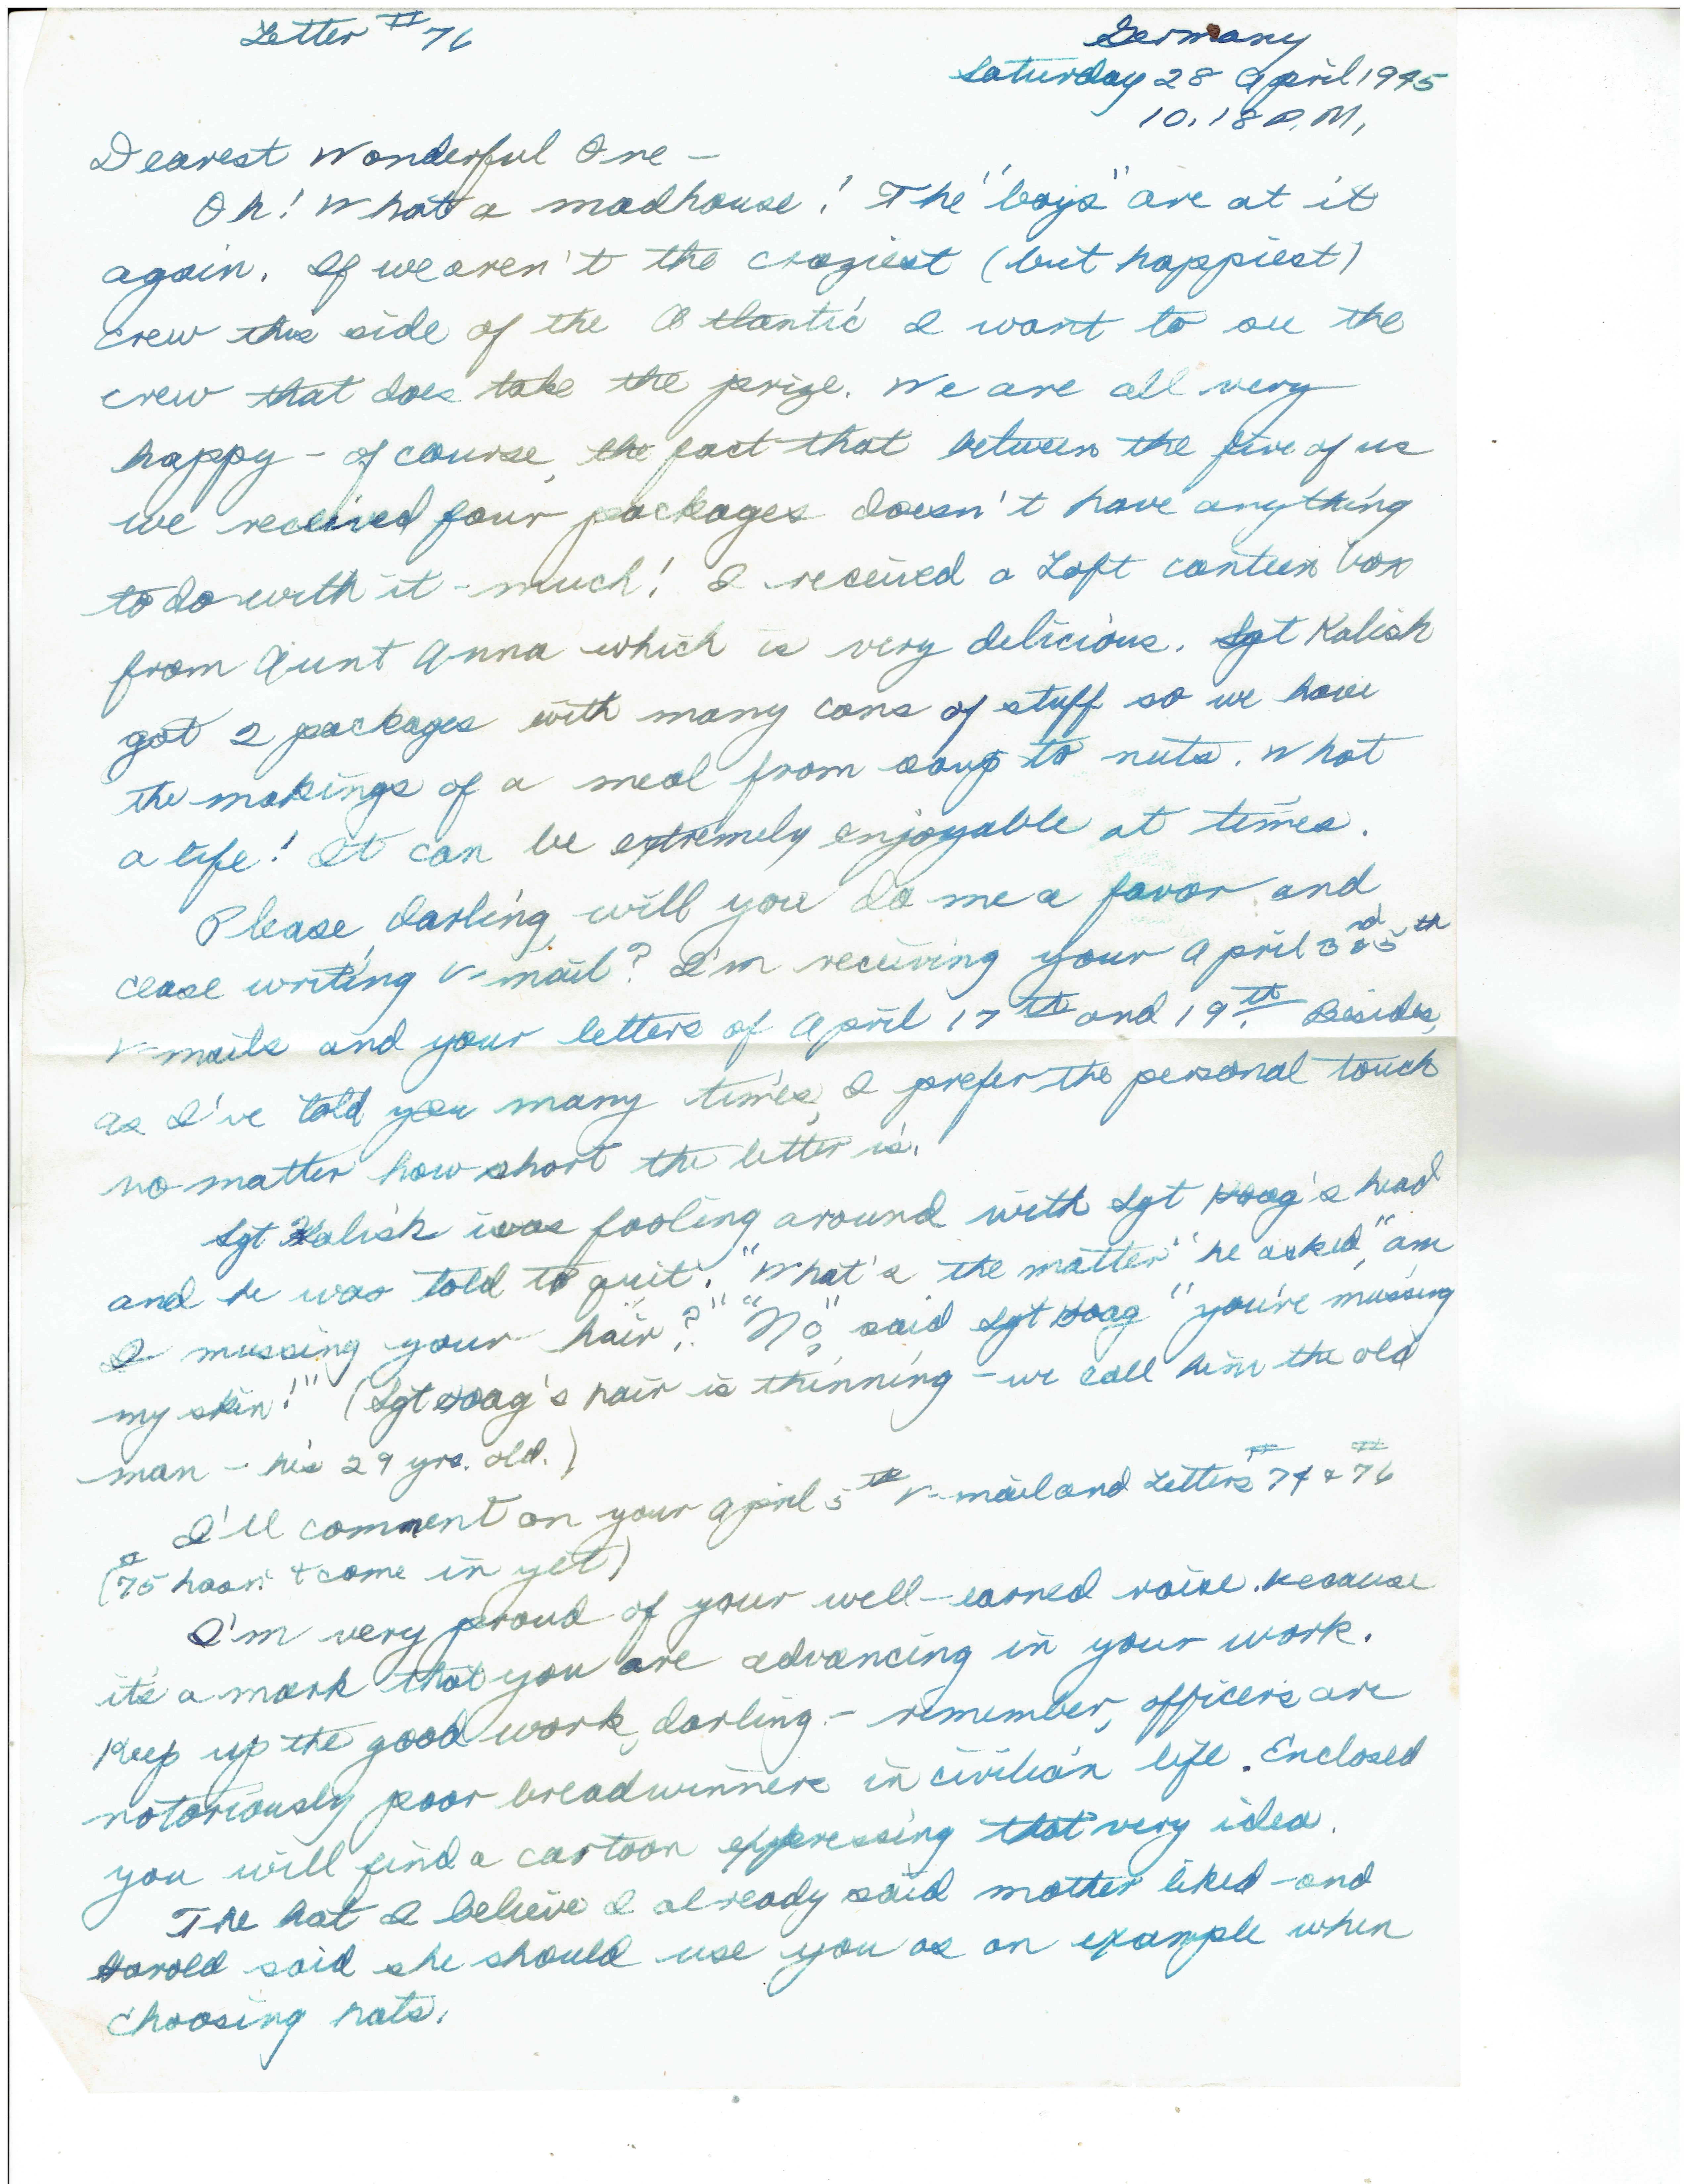 Letter #76
Germany
Saturday 28 April 1945
10:18 P.M.
Dearest Wonderful One –
Oh! What a madhouse! The "boys" are at it
again. If we aren't the craziest (but happiest)
crew this side of the Atlantic I want to see the
crew that does take the prize. We are all very
happy – of course, the fact that between the five of us
we received four packages doesn't have anything
to do with it – much! I received a Loft canteen box
from Aunt Anna which is very delicious. Sgt Kalish
got 2 packages with many cans of stuff so we have
the makings of a meal from soup to nuts. What
a life! It can be extremely enjoyable at times.
Please, darling, will you do me a favor and
cease writing V-mail? I'm receiving your April 3rd & 5th
V-mails and your letters of April 17th and 19th. Besides,
as I've told you many times, I prefer the personal touch
no matter how short the letter is.
Sgt Kalish was fooling around with Sgt Hoag's head
and he was told to quit. "What's the matter" he asked, "am
I mussing your hair?" "No", said Sgt Hoag "you're mussing
my skin!" (Sgt Hoag's hair is thinning – we call him the old
man – he's 29 yrs. old.)
I'll comment on your April 5th V-mail and Letters #74 & #76
(#75 hasn't come in yet)
I'm very proud of your well-earned raise because
it's a mark that you are advancing in your work.
Keep up the good work, darling – remember, officers are
notoriously poor breadwinners in civilian life. Enclosed
you will find a cartoon expressing that very idea.
The hat I believe I already said mother liked – and
Harold said she should use you as an example when
choosing hats.